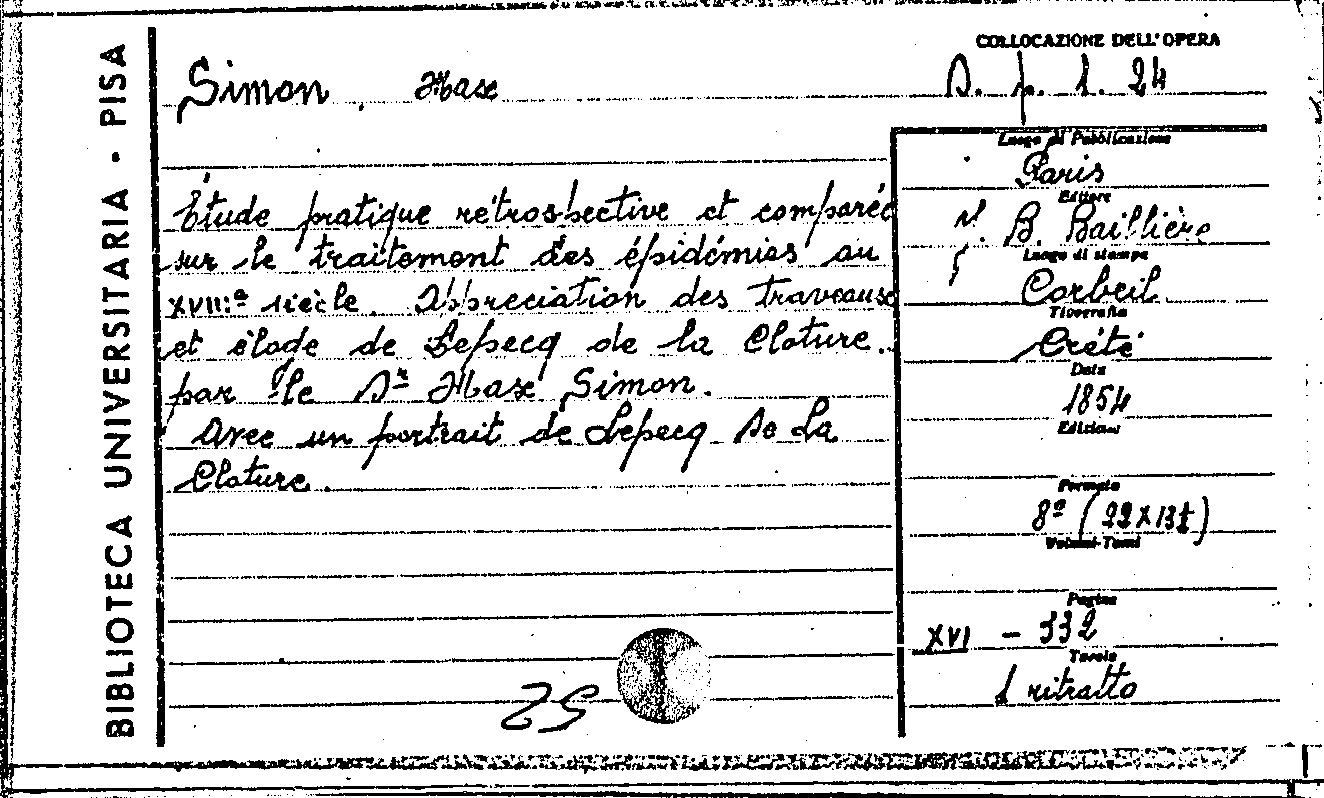 BIBLIOTECA UNIVERSITARIA · PISA
COLLOCAZIONE DELL'OPERA
Simon, Max
D. p. 1. 24
Étude pratique rétrospective et comparée
sur le traitement des épidémies au
XVIII:e siècle. Appreciation des traveaux
et éloge de Lepecq de la Cloture.
par le Dr Max Simon.
Avec un portrait de Lepecq De La
Cloture.
Luogo di Pubblicazione
Paris
Editore
B. Baillière
Luogo di stampa
Corbeil
Tipografia
Crété
Data
1854
Edizioni
Formato
8º (22x13½)
Volumi-Tomi
Pagine
XVI - 332
Tavole
1 ritratto
52